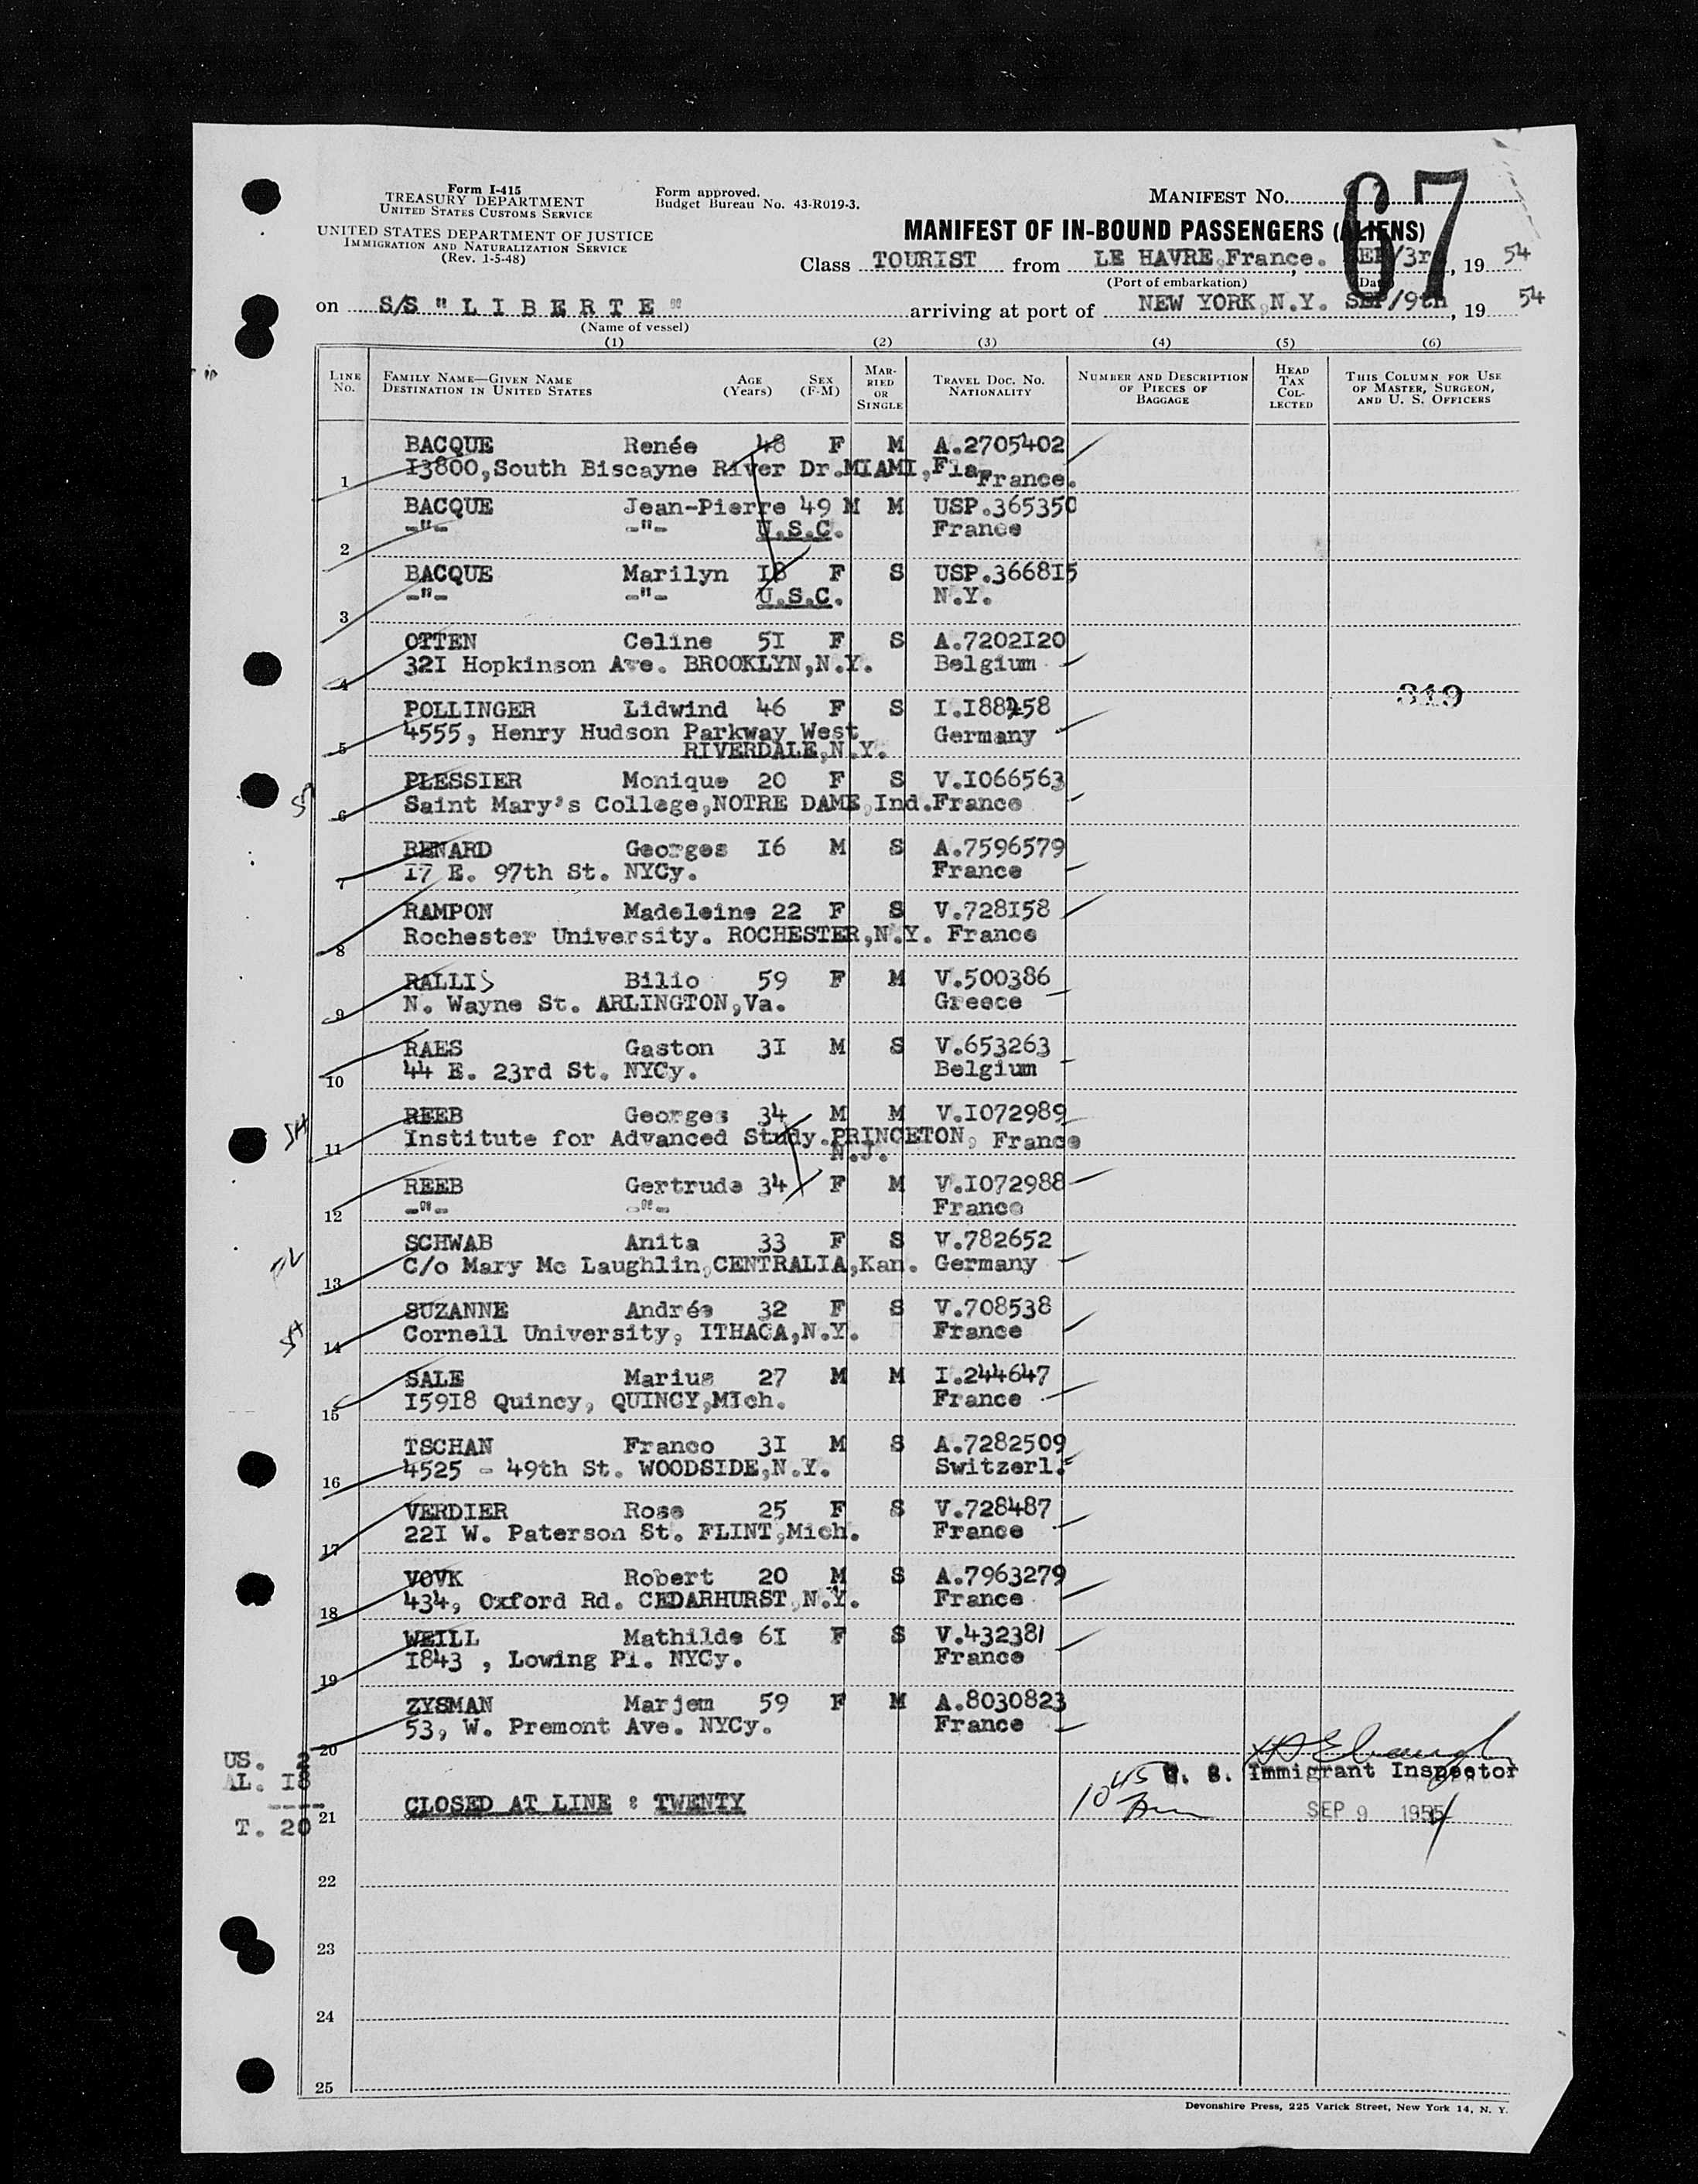 Form I-415
TREASURY DEPARTMENT
UNITED STATES CUSTOMS SERVICE
UNITED STATES DEPARTMENT OF JUSTICE
IMMIGRATION AND NATURALIZATION SERVICE
(Rev. 1-5-48)
Form approved.
Budget Bureau No. 43-R019-3.
MANIFEST NO. 67
MANIFEST OF IN-BOUND PASSENGERS (ALIENS)
Class TOURIST from LE HAVRE,France. SEP/3rd, 19 54
(Port of embarkation) (Date)
on S/S "L I B E R T E" arriving at port of NEW YORK,N.Y. SEP/9th, 19 54
(Name of vessel)
(1) (2) (3) (4) (5) (6)
LINE No. FAMILY NAME—GIVEN NAME DESTINATION IN UNITED STATES AGE (Years) SEX (F-M) MARRIED OR SINGLE TRAVEL DOC. NO. NATIONALITY NUMBER AND DESCRIPTION OF PIECES OF BAGGAGE HEAD TAX COLLECTED THIS COLUMN FOR USE OF MASTER, SURGEON, AND U. S. OFFICERS
BACQUE Renée 48 F M A.2705402
1 I3800,South Biscayne River Dr.MIAMI,Fla France.
BACQUE Jean-Pierre 49 M M USP.365350
2 -"- -"- U.S.C. France
BACQUE Marilyn I8 F S USP.3668I5
3 -"- -"- U.S.C. N.Y.
OTTEN Celine 5I F S A.7202I20
4 32I Hopkinson Ave. BROOKLYN,N.Y. Belgium
319
POLLINGER Lidwind 46 F S I.I88458
4555, Henry Hudson Parkway West Germany
5 RIVERDALE,N.Y.
PLESSIER Monique 20 F S V.I066563
6 Saint Mary's College,NOTRE DAME,Ind.France
RENARD Georges I6 M S A.7596579
7 I7 E. 97th St. NYCy. France
RAMPON Madeleine 22 F S V.728I58
8 Rochester University. ROCHESTER,N.Y. France
RALLIS Bilio 59 F M V.500386
9 N. Wayne St. ARLINGTON,Va. Greece
RAES Gaston 3I M S V.653263
10 44 E. 23rd St. NYCy. Belgium
REEB Georges 34 M M V.I072989
11 Institute for Advanced Study.PRINCETON, France
N.J.
REEB Gertrude 34 F M V.I072988
12 -"- -"- France
SCHWAB Anita 33 F S V.782652
13 C/o Mary Mc Laughlin,CENTRALIA,Kan. Germany
SUZANNE Andrée 32 F S V.708538
14 Cornell University, ITHACA,N.Y. France
SALE Marius 27 M M I.244647
15 I59I8 Quincy, QUINCY,MIch. France
TSCHAN Franco 3I M S A.7282509
16 4525 - 49th St. WOODSIDE,N.Y. Switzerl.
VERDIER Rose 25 F S V.728487
17 22I W. Paterson St. FLINT,Mich. France
VOVK Robert 20 M S A.7963279
18 434, Oxford Rd. CEDARHURST,N.Y. France
WEILL Mathilde 6I F S V.432381
19 I843 , Lowing Pl. NYCy. France
ZYSMAN Marjem 59 F M A.8030823
20 53, W. Premont Ave. NYCy. France
US. 2
AL. I8
T. 20
U. S. Immigrant Inspector
1045
21 CLOSED AT LINE : TWENTY
SEP 9 1954
22
23
24
25
Devonshire Press, 225 Varick Street, New York 14, N. Y.